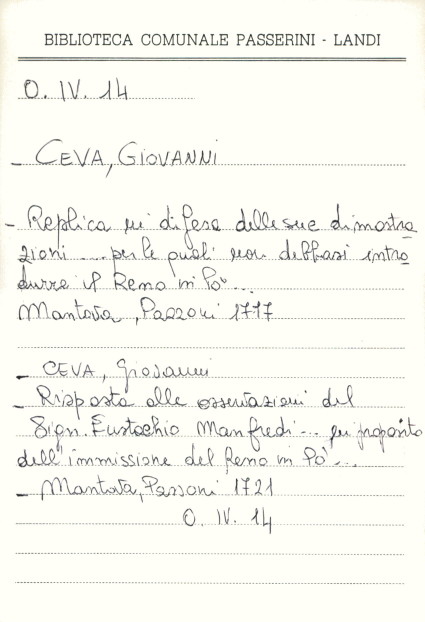 BIBLIOTECA COMUNALE PASSERINI - LANDI
O. IV. 14
- CEVA, GIOVANNI
- Replica in difesa delle sue dimostra
zioni .... per le quali non debbasi intro
durre il Reno in Pò...
Mantova, Pazzoni 1717
- CEVA, Giovanni
- Risposta alle osservazioni del
Sign. Eustachio Manfredi... in proposito
dell'immissione del Reno in Pò...
- Mantova, Pazzoni 1721
O. IV. 14